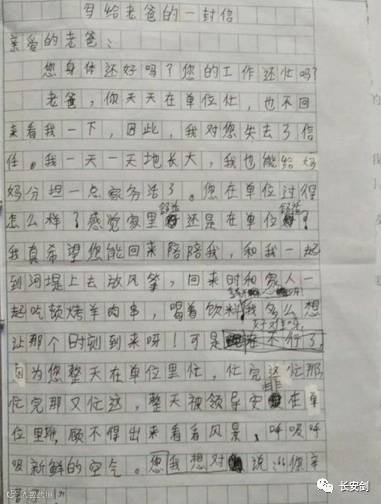 写给老爸的一封信
亲爱的老爸：
您身体还好吗？您的工作还忙吗？
老爸，你天天在单位忙，也不回
来看我一下，因此，我对您失去了信
任。我一天一天地长大，我也能给妈
妈分担一点家务活了。您在单位过得
怎么样了？感觉家里舒适还是在单位舒适？
我真希望您能回来陪陪我，和我一起
到河堤上去放风筝，回来时和家人一
起吃顿烤羊肉串，喝着饮料，我多么想
让那个时刻到来呀！可是在不行了，
因为您整天在单位里忙，忙完这忙那，
忙完那又忙这，整天被领导安排在单
位里班，顾不得出来看看风景，呼吸呼
吸新鲜的空气。我想对说：“你辛
长安剑